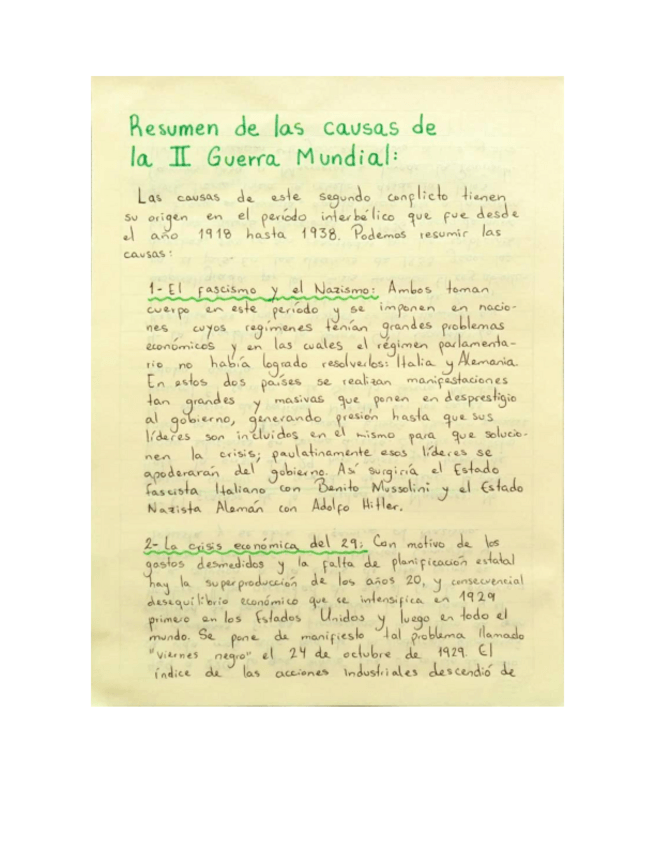 Resumen de las causas de
la II Guerra Mundial:
Las causas de este segundo conflicto tienen
su origen en el período interbélico que fue desde
el año 1918 hasta 1938. Podemos resumir las
causas:
1- El fascismo y el Nazismo: Ambos toman
cuerpo en este período y se imponen en nacio-
nes cuyos regímenes tenían grandes problemas
económicos y en las cuales el régimen parlamenta-
rio no había logrado resolverlos: Italia y Alemania.
En estos dos países se realizan manifestaciones
tan grandes y masivas que ponen en desprestigio
al gobierno, generando presión hasta que sus
líderes son incluidos en el mismo para que solucio-
nen la crisis; paulatinamente esos líderes se
apoderarán del gobierno. Así surgiría el Estado
Fascista Italiano con Benito Mussolini y el Estado
Nazista Alemán con Adolfo Hitler.
2- La crisis económica del 29: Con motivo de los
gastos desmedidos y la falta de planificación estatal
hay la superproducción de los años 20, y consecuencial
desequilibrio económico que se intensifica en 1929
primero en los Estados Unidos y luego en todo el
mundo. Se pone de manifiesto tal problema llamado
"viernes negro" el 24 de octubre de 1929. El
índice de las acciones industriales descendió de